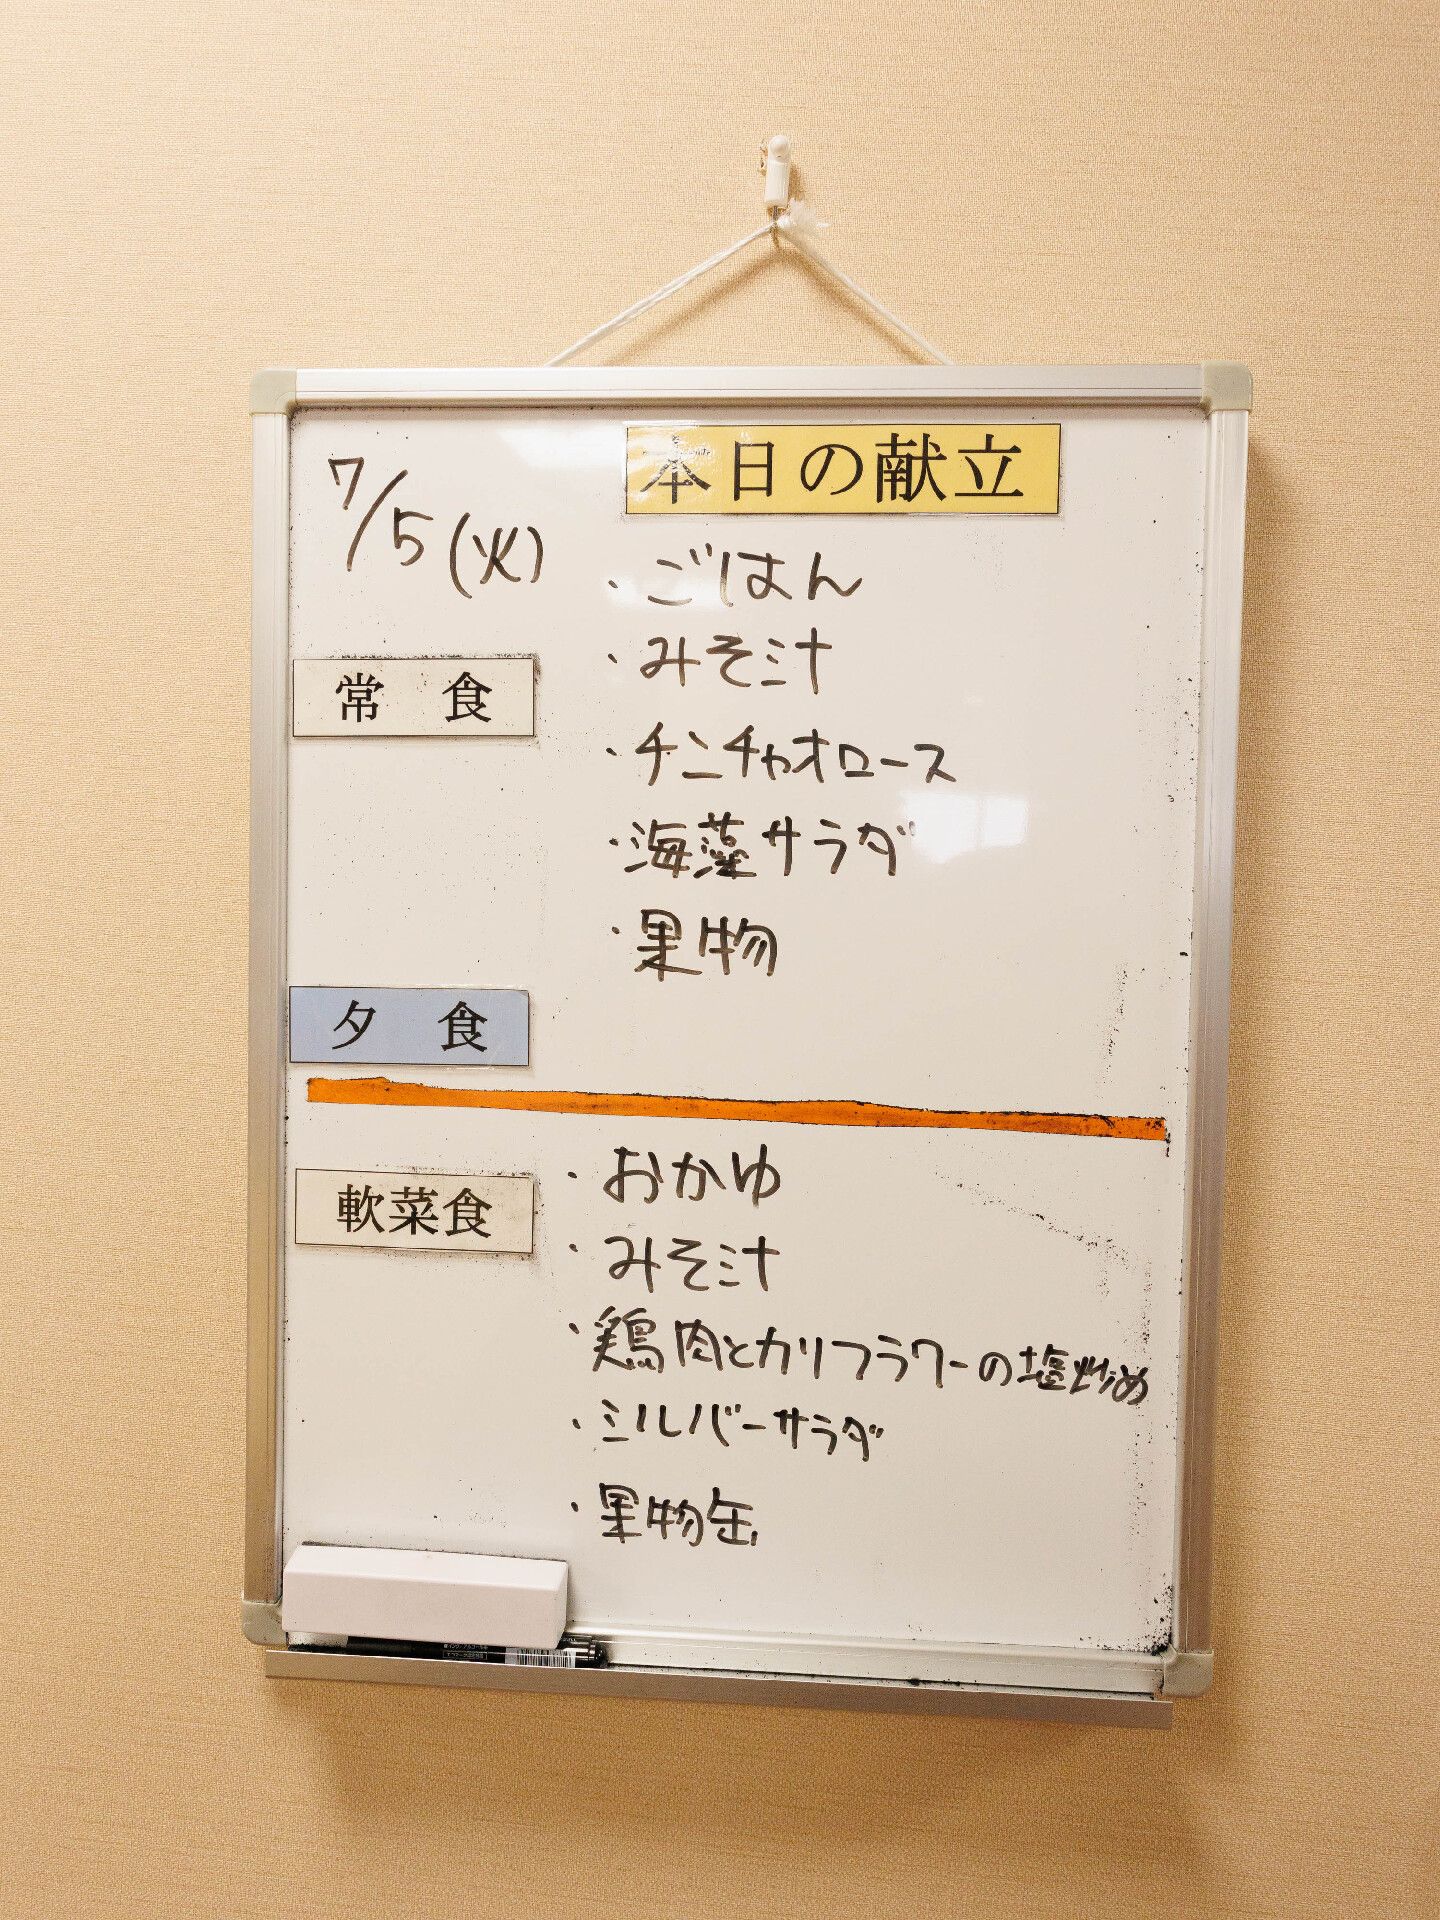 本日の献立
7/5(火)
・ごはん
・みそ汁
常 食
・チンチャオロース
・海藻サラダ
・果物
夕 食
・おかゆ
軟菜食
・みそ汁
・鶏肉とカリフラワーの塩炒め
・シルバーサラダ
・果物缶